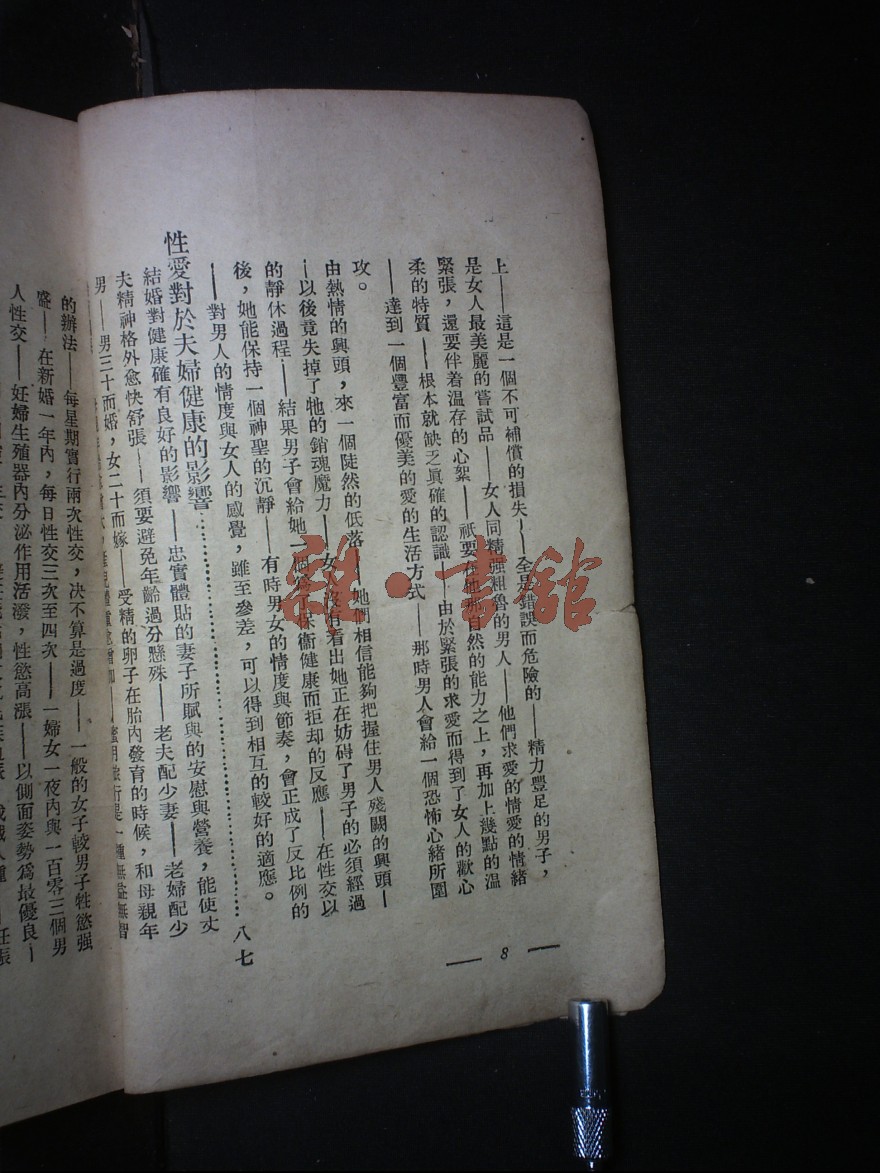 上——這是一個不可補償的損失——全是錯誤而危險的——精力豐足的男子，
是女人最美麗的嘗試品——女人同精强粗魯的男人——他們求愛的情愛的情緒
緊張，還要伴着温存的心絮——祇要在他那自然的能力之上，再加上幾點的温
柔的特質——根本就缺乏眞確的認識——由於緊張的求愛而得到了女人的歡心
——達到一個豐富而優美的愛的生活方式——那時男人會給一個恐怖心緒所圍
攻。
由熱情的興頭，來一個陡然的低落——她們相信能夠把握住男人殘闕的興頭—
—以後竟失掉了牠的銷魂魔力——女 没有看出她正在妨碍了男子的必須經過
的靜休過程——結果男子會給她一個 了保衞健康而拒却的反應——在性交以
後，她能保持一個神聖的沉靜——有時男女的情度與節奏，會正成了反比例的
——對男人的情度與女人的感覺，雖至參差，可以得到相互的較好的適應。
性愛對於夫婦健康的影響……………………………………八七
結婚對健康確有良好的影響——忠實體貼的妻子所賦與的安慰與營養，能使丈
夫精神格外愈快舒張——須要避免年齡過分懸殊——老夫配少妻——老婦配少
男——男三十而婚，女二十而嫁——受精的卵子在胎內發育的時候，和母親年
的辦法——每星期實行兩次性交，决不算是過度——一般的女子較男子牲慾强
盛——在新婚一年內，每日性交三次至四次——一婦女一夜內與一百零三個男
人性交——妊婦生殖器內分泌作用活潑，性慾高漲——以側面姿勢爲最優良—
— 8 —
· 書舘